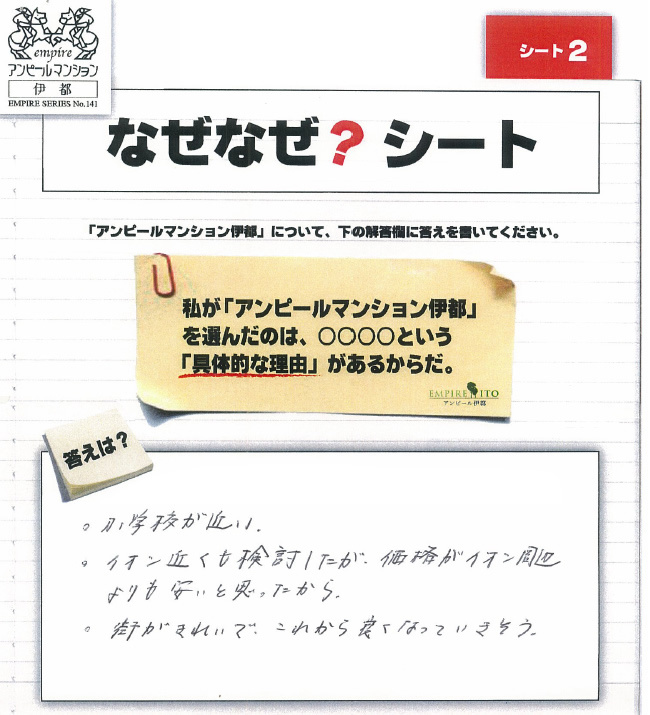 empire
アンピールマンション
伊都
EMPIRE SERIES No.141
シート2
なぜなぜ?シート
「アンピールマンション伊都」について、下の解答欄に答えを書いてください。
私が「アンピールマンション伊都」
を選んだのは、○○○○という
「具体的な理由」があるからだ。
EMPIRE ITO
アンピール伊都
答えは?
。小学校が近い.
。イオン近くも検討したが、価格がイオン周辺
よりも安いと思ったから.
。街がきれいで、これから良くなっていきそう.